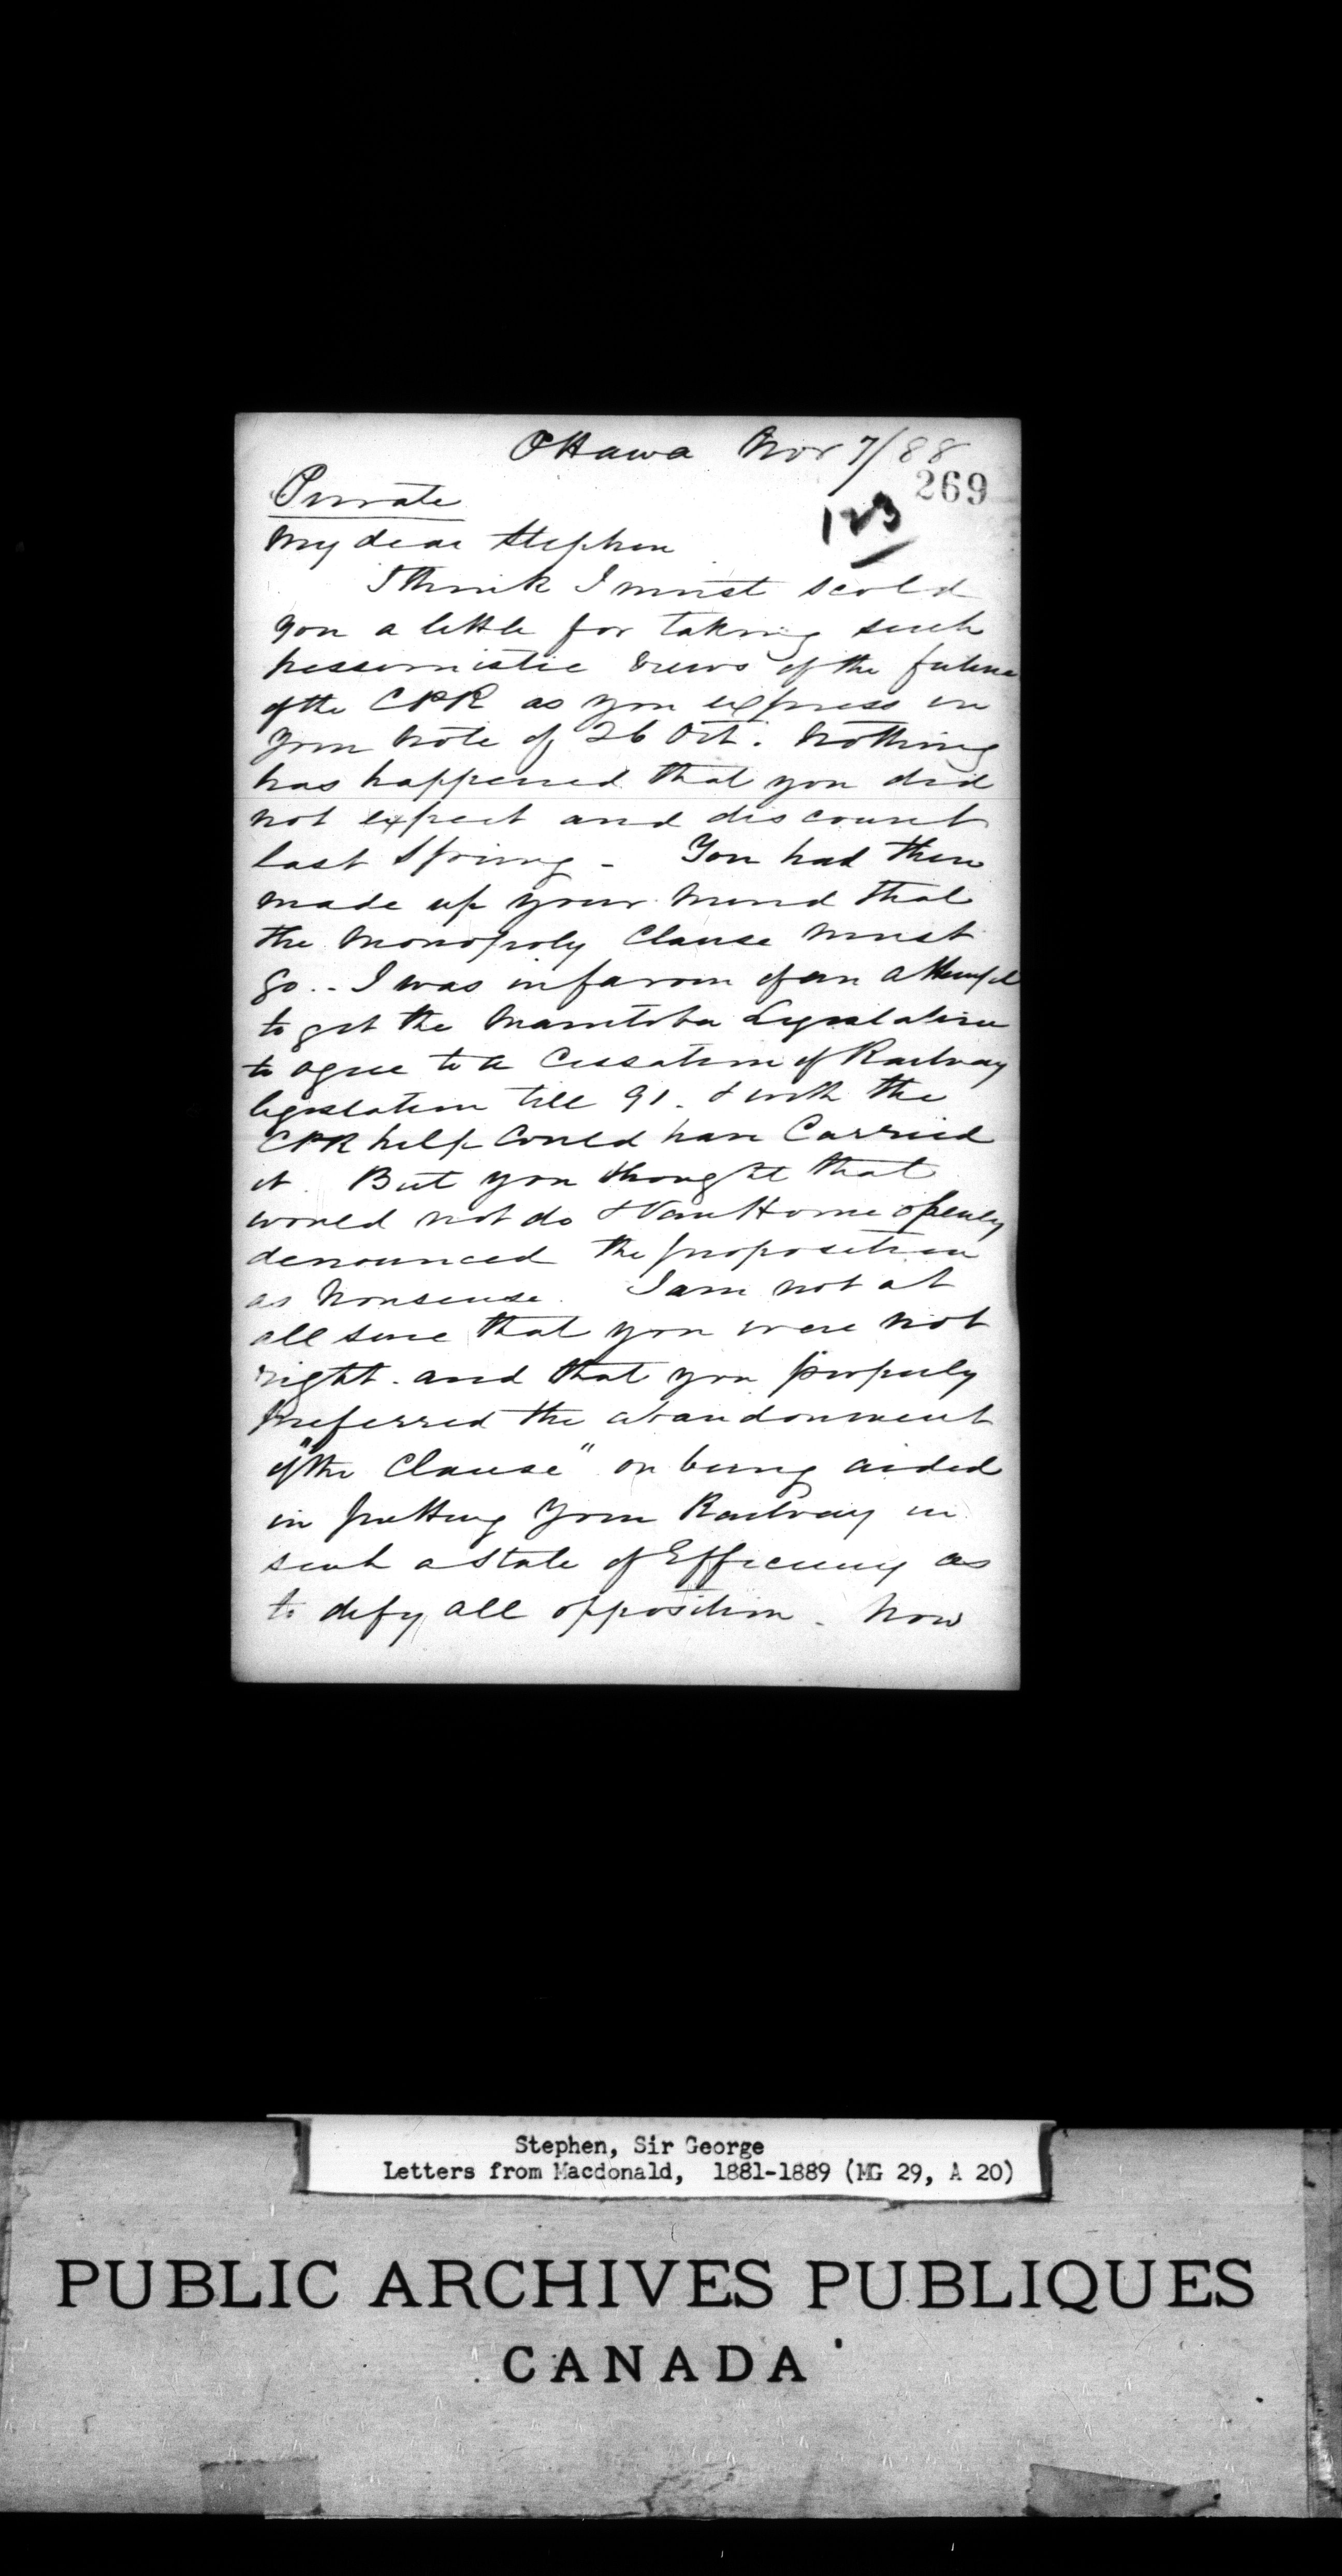 Ottawa Nov 7/88
269
Private
123
My dear Stephen
I think I must scold
you a little for taking such
pessimistic views of the future
of the CPR as you express in
your note of 26 Oct. Nothing
has happened that you did
not expect and discount
last Spring - You had then
made up your mind that
the Monopoly Clause must
go.. I was in favour of an attempt
to get the Manitoba Legislature
to agree to a Cessation of Railway
legislation till 91. & with the
CPR help could have Carried
it. But you thought that
would not do & Van Horne openly
denounced the proposition
as Nonsense. I am not at
all sure that you were not
right. and that you properly
preferred the abandonment
of "the Clause" on being aided
in putting your Railway in
such a State of Efficiency as
to defy all opposition. Now
Stephen, Sir George
Letters from Macdonald, 1881-1889 (MG 29, A 20)
PUBLIC ARCHIVES PUBLIQUES
CANADA